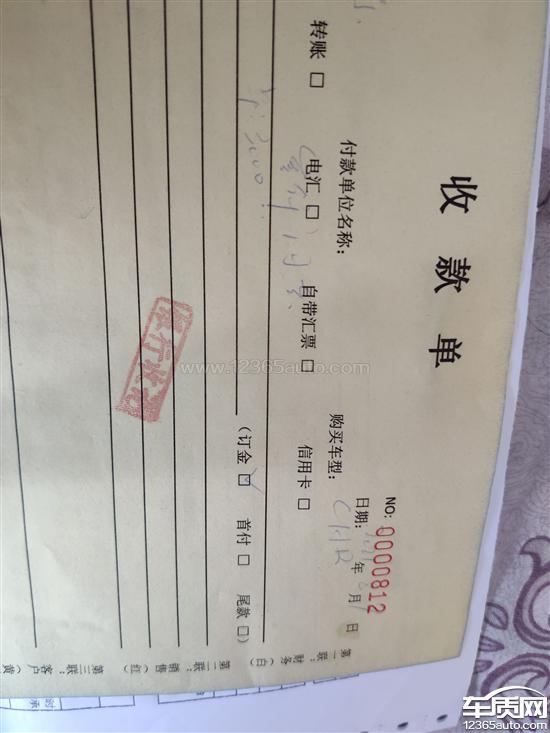 收款单
NO: 0000812
日期: 年 月 日
付款单位名称:
购买车型: CHR
转账 □ 电汇 □ 自带汇票 □ 信用卡 □
¥: 3000
(订金 ☑ 首付 □ 尾款 □)
第一联:财务(白)
第二联:销售(红)
第三联:客户(黄
www.12365auto.com
车质网
12365auto.com